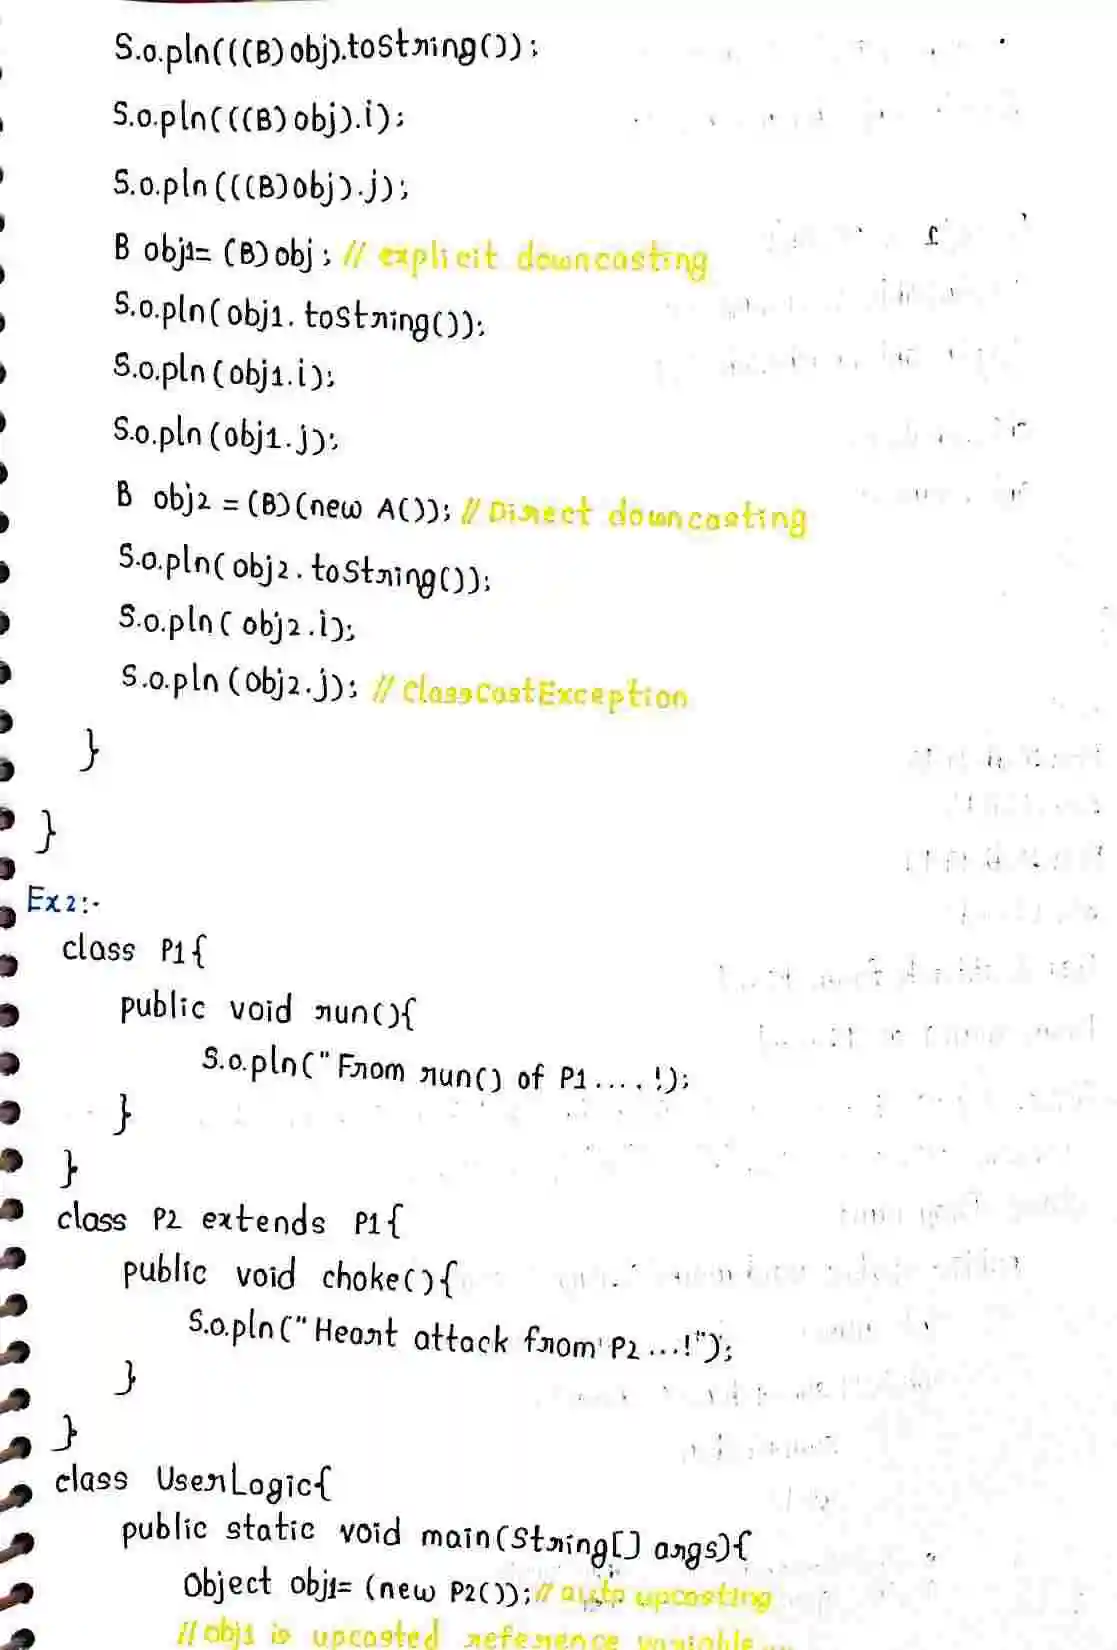 S.o.pln(((B) obj).toString());
S.o.pln(((B) obj).i);
S.o.pln(((B)obj).j);
B obj1= (B) obj; // explicit downcasting
S.o.pln(obj1.toString());
S.o.pln(obj1.i);
S.o.pln(obj1.j);
B obj2 = (B)(new A()); // Direct downcasting
S.o.pln(obj2.toString());
S.o.pln( obj2.i);
S.o.pln (obj2.j); // ClassCastException
}
}
Ex2:-
class P1{
public void run(){
S.o.pln(" From run() of P1....!);
}
}
class P2 extends P1{
public void choke(){
S.o.pln("Heart attack from P2...!");
}
}
class UserLogic{
public static void main(String[] args){
Object obj1= (new P2()); // auto upcasting
// obj1 is upcasted reference variable...